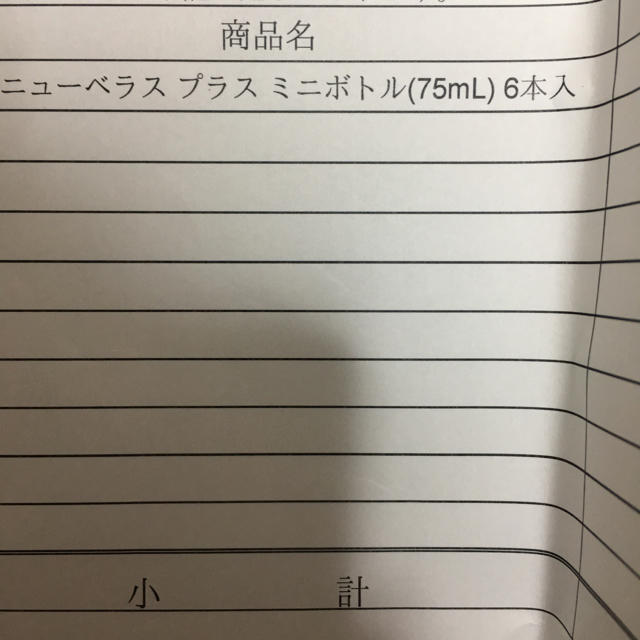 商品名
ニューベラス プラス ミニボトル(75mL) 6本入
小 計